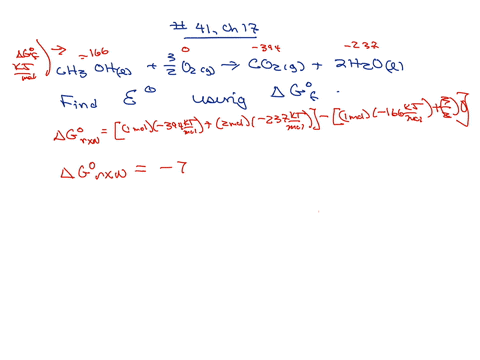 # 41, ch 17
ΔG°f kJ/mol → -166 0 -394 -237
CH3OH(l) + 3/2 O2(g) → CO2(g) + 2H2O(l)
Find ℰ° using ΔG°f.
ΔG°rxn = [(1mol)(-394 kJ/mol) + (2mol)(-237 kJ/mol)] - [(1mol)(-166 kJ/mol) + (3/2)0]
ΔG°rxn = -7